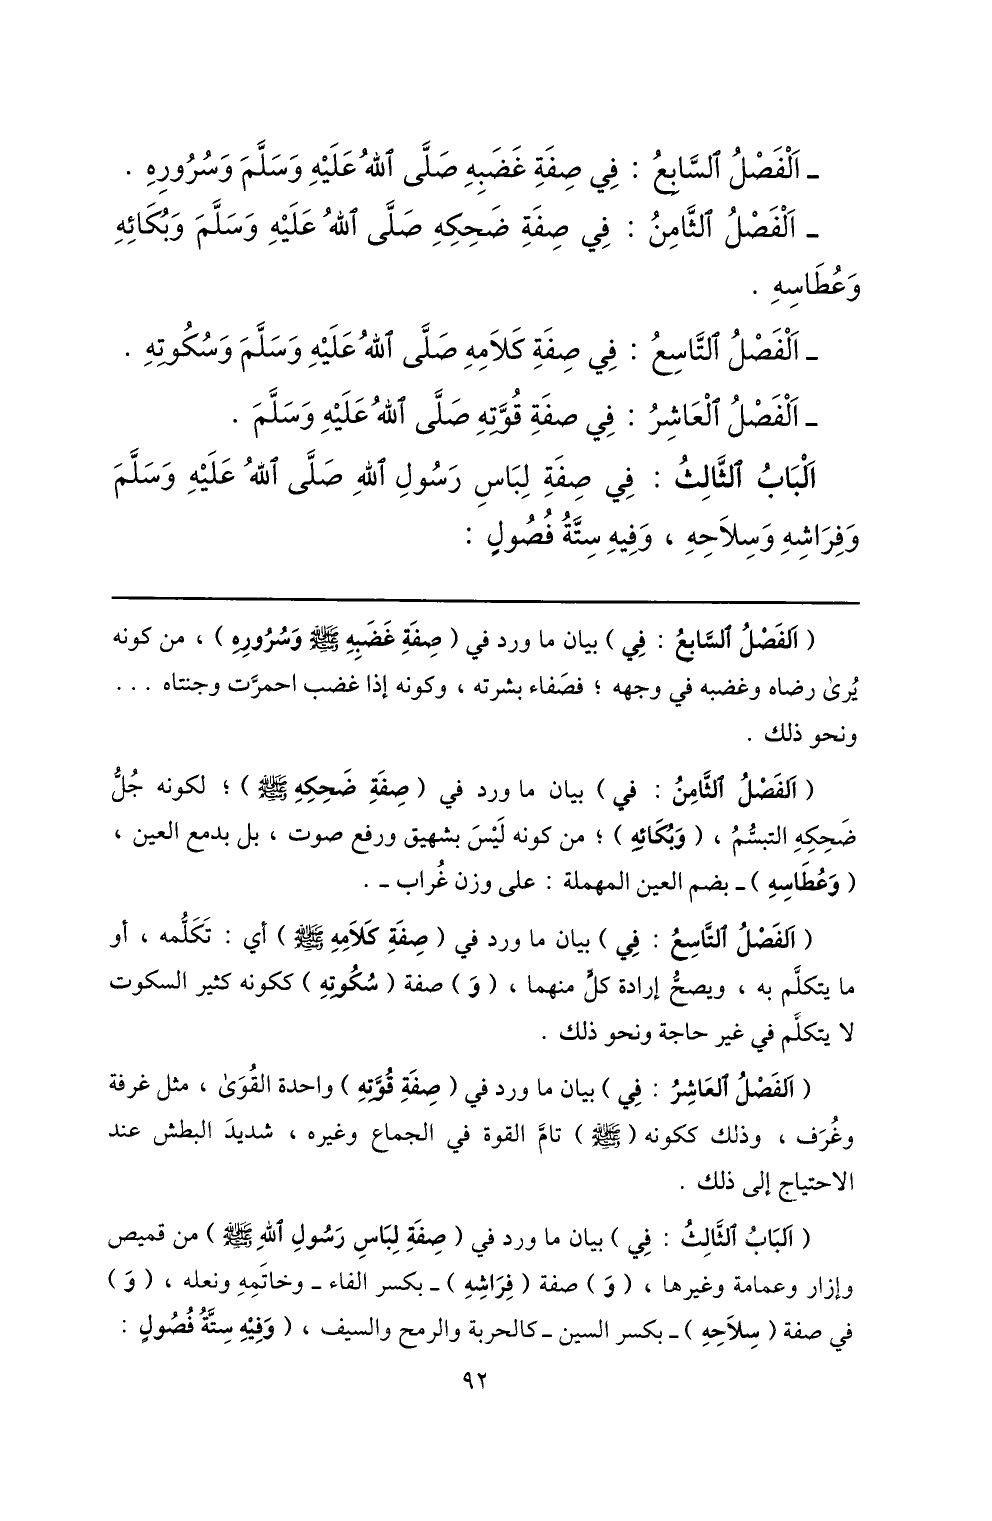 ـ اَلْفَصْلُ ٱلسَّابِعُ : فِي صِفَةِ غَضَبِهِ صَلَّى ٱللهُ عَلَيْهِ وَسَلَّمَ وَسُرُورِهِ .
ـ اَلْفَصْلُ ٱلثَّامِنُ : فِي صِفَةِ ضَحِكِهِ صَلَّى ٱللهُ عَلَيْهِ وَسَلَّمَ وَبُكَائِهِ
وَعُطَاسِهِ .
ـ اَلْفَصْلُ ٱلتَّاسِعُ : فِي صِفَةِ كَلَامِهِ صَلَّى ٱللهُ عَلَيْهِ وَسَلَّمَ وَسُكُوتِهِ .
ـ اَلْفَصْلُ ٱلْعَاشِرُ : فِي صفَةِ قُوَّتِهِ صَلَّى ٱللهُ عَلَيْهِ وَسَلَّمَ .
اَلْبَابُ ٱلثَّالِثُ : فِي صِفَةِ لِبَاسِ رَسُولِ ٱللهِ صَلَّى ٱللهُ عَلَيْهِ وَسَلَّمَ
وَفِرَاشِهِ وَسِلاَحِهِ ، وَفِيهِ سِتَّةُ فُصُولٍ :
( اَلفَصْلُ ٱلسَّابعُ : فِي ) بيان ما ورد في ( صِفَةِ غَضَبِهِ ﷺ وَسُرُورِهِ ) ، من كونه
يُرىٰ رضاه وغضبه في وجهه ؛ فصَفاء بشرته ، وكونه إذا غضب احمرَّت وجنتاه . . .
ونحو ذلك .
( اَلفَصْلُ ٱلثَّامِنُ : في ) بيان ما ورد في ( صِفَةِ ضَحِكِهِ ﷺ ) ؛ لكونه جُلُّ
ضَحِكِهِ التبسُّمُ ، ( وَبُكَائِهِ ) ؛ من كونه لَيْسَ بشهيق ورفع صوت ، بل بدمع العين ،
( وَعُطَاسِهِ ) ـ بضم العين المهملة : على وزن غُراب ـ .
( اَلفَصْلُ ٱلتَّاسِعُ : فِي ) بيان ما ورد في ( صِفَةِ كَلَامِهِ ﷺ ) أي : تَكَلُّمه ، أو
ما يتكلَّم به ، ويصحُّ إرادة كلٍّ منهما ، ( وَ ) صفة ( سُكُوتِهِ ) ككونه كثير السكوت
لا يتكلَّم في غير حاجة ونحو ذلك .
( اَلفَصْلُ العَاشِرُ : فِي ) بيان ما ورد في ( صِفَةِ قُوَّتِهِ ) واحدة القُوَىٰ ، مثل غرفة
وغُرَف ، وذلك ككونه ( ﷺ ) تامَّ القوة في الجماع وغيره ، شديدَ البطش عند
الاحتياج إلى ذلك .
( اَلبَابُ ٱلثَّالِثُ : فِي ) بيان ما ورد في ( صِفَةِ لِبَاسِ رَسُولِ ٱللهِ ﷺ ) من قميص
وإزار وعمامة وغيرها ، ( وَ ) صفة ( فِرَاشِهِ ) ـ بكسر الفاء ـ وخاتَمِهِ ونعله ، ( وَ )
في صفة ( سِلاَحِهِ ) ـ بكسر السين ـ كالحربة والرمح والسيف ، ( وَفِيْهِ سِتَّةُ فُصُولٍ :
٩٢